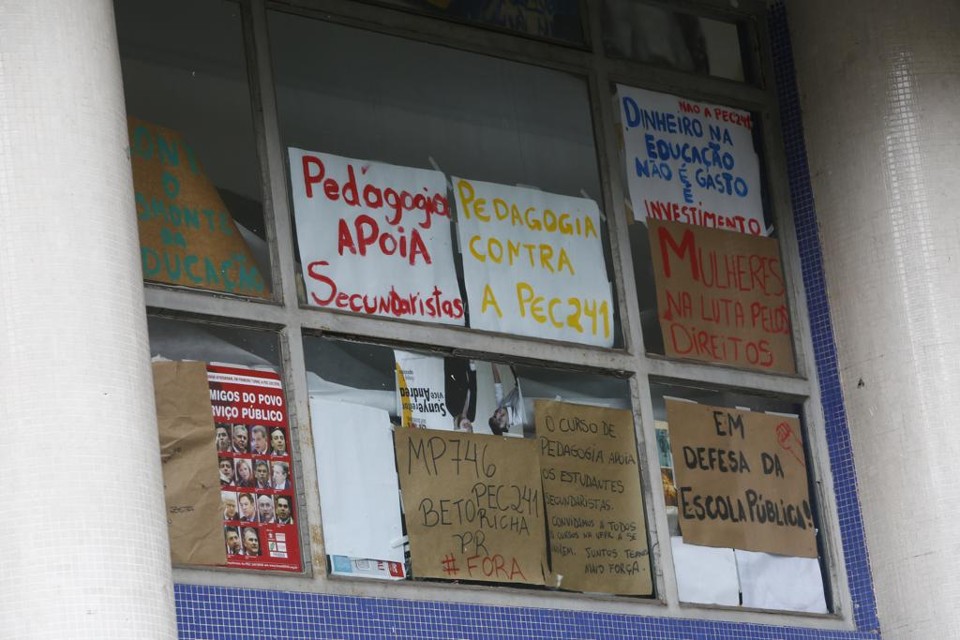 O
MONTE
DA
EDUCAÇÃO
Pedagogia
APOIA
Secundaristas
PEDAGOGIA
CONTRA
A PEC241
NÃO A PEC241
DINHEIRO NA
EDUCAÇÃO
NÃO É GASTO
É
INVESTIMENTO
MULHERES
NA LUTA PELOS
DIREITOS
MIGOS DO POVO
RVIÇO PÚBLICO
Sunye
vice
Andrea
MP746
PEC241
BETO RICHA
PR
#FORA
O CURSO DE
PEDAGOGIA APOIA
OS ESTUDANTES
SECUNDARISTAS.
CONVIDAMOS A TODOS
OS CURSOS DA UFPR A SE
UNIREM. JUNTOS TEMOS
MAIS FORÇA.
EM
DEFESA DA
ESCOLA PÚBLICA!